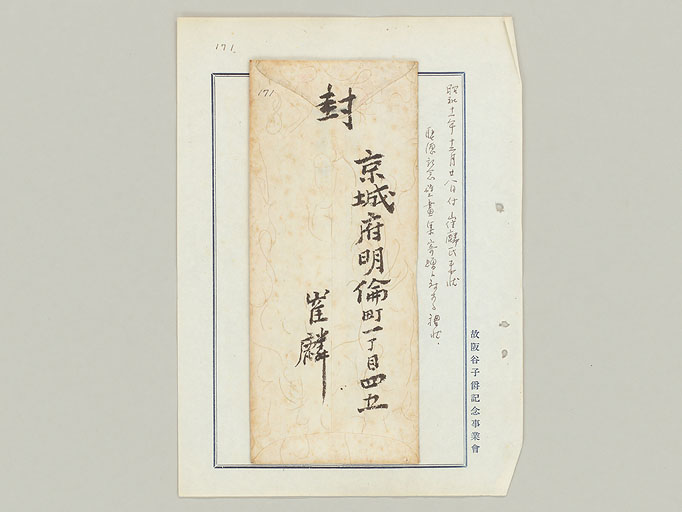 171
昭和十一年十二月廿八日付 崔麟氏来状
記念 画集寄贈に対する礼状.
171
封
京城府明倫町一丁目四五
崔麟
故阪谷子爵記念事業會